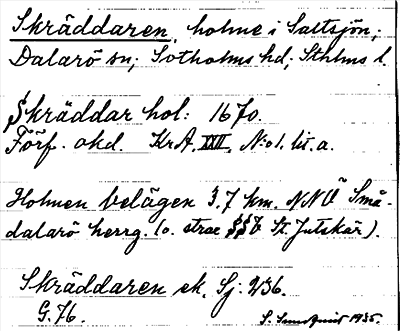 Skräddaren, holme i Saltsjön;
Dalarö sn; Sotholms hd; Sthlms l.
Skräddar hol: 1670.
Förf. okd. KrA. XXII, N:o 1. lit. a.
Holmen belägen 3.7 km. NNÖ Små-
dalarö herrg. (o. strax SSV St. Jutskär).
Skräddaren ek. Sj: 236.
G. 76.
S. Sundqvist 1935.